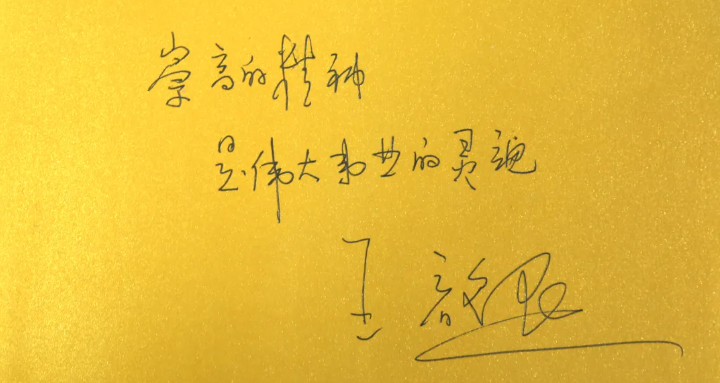 崇高的精神
是伟大事业的灵魂
王